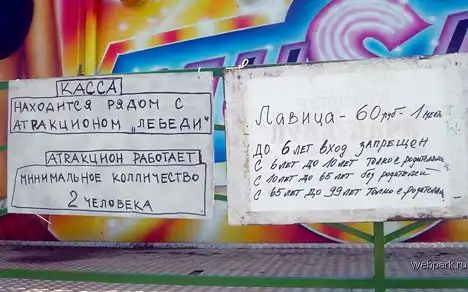 КАССА
НАХОДИТСЯ РЯДОМ С
АТRАКЦИОНОМ „ЛЕБЕДИ"
АТRАКЦИОН РАБОТАЕТ
МИНИМАЛЬНОЕ КОЛЛИЧЕСТВО
2 ЧЕЛОВЕКА
Лавица - 60 руб - 1 мест
ДО 6 ЛЕТ ВХОД ЗАПРЕЩЕН
С 6 ЛЕТ ДО 10 ЛЕТ ТОЛЬКО С РОДИТЕЛЯМИ
С 10 ЛЕТ ДО 65 ЛЕТ БЕЗ РОДИТЕЛЕЙ
С 65 ЛЕТ ДО 99 ЛЕТ ТОЛЬКО С РОДИТЕЛЯМИ
webpark.ru